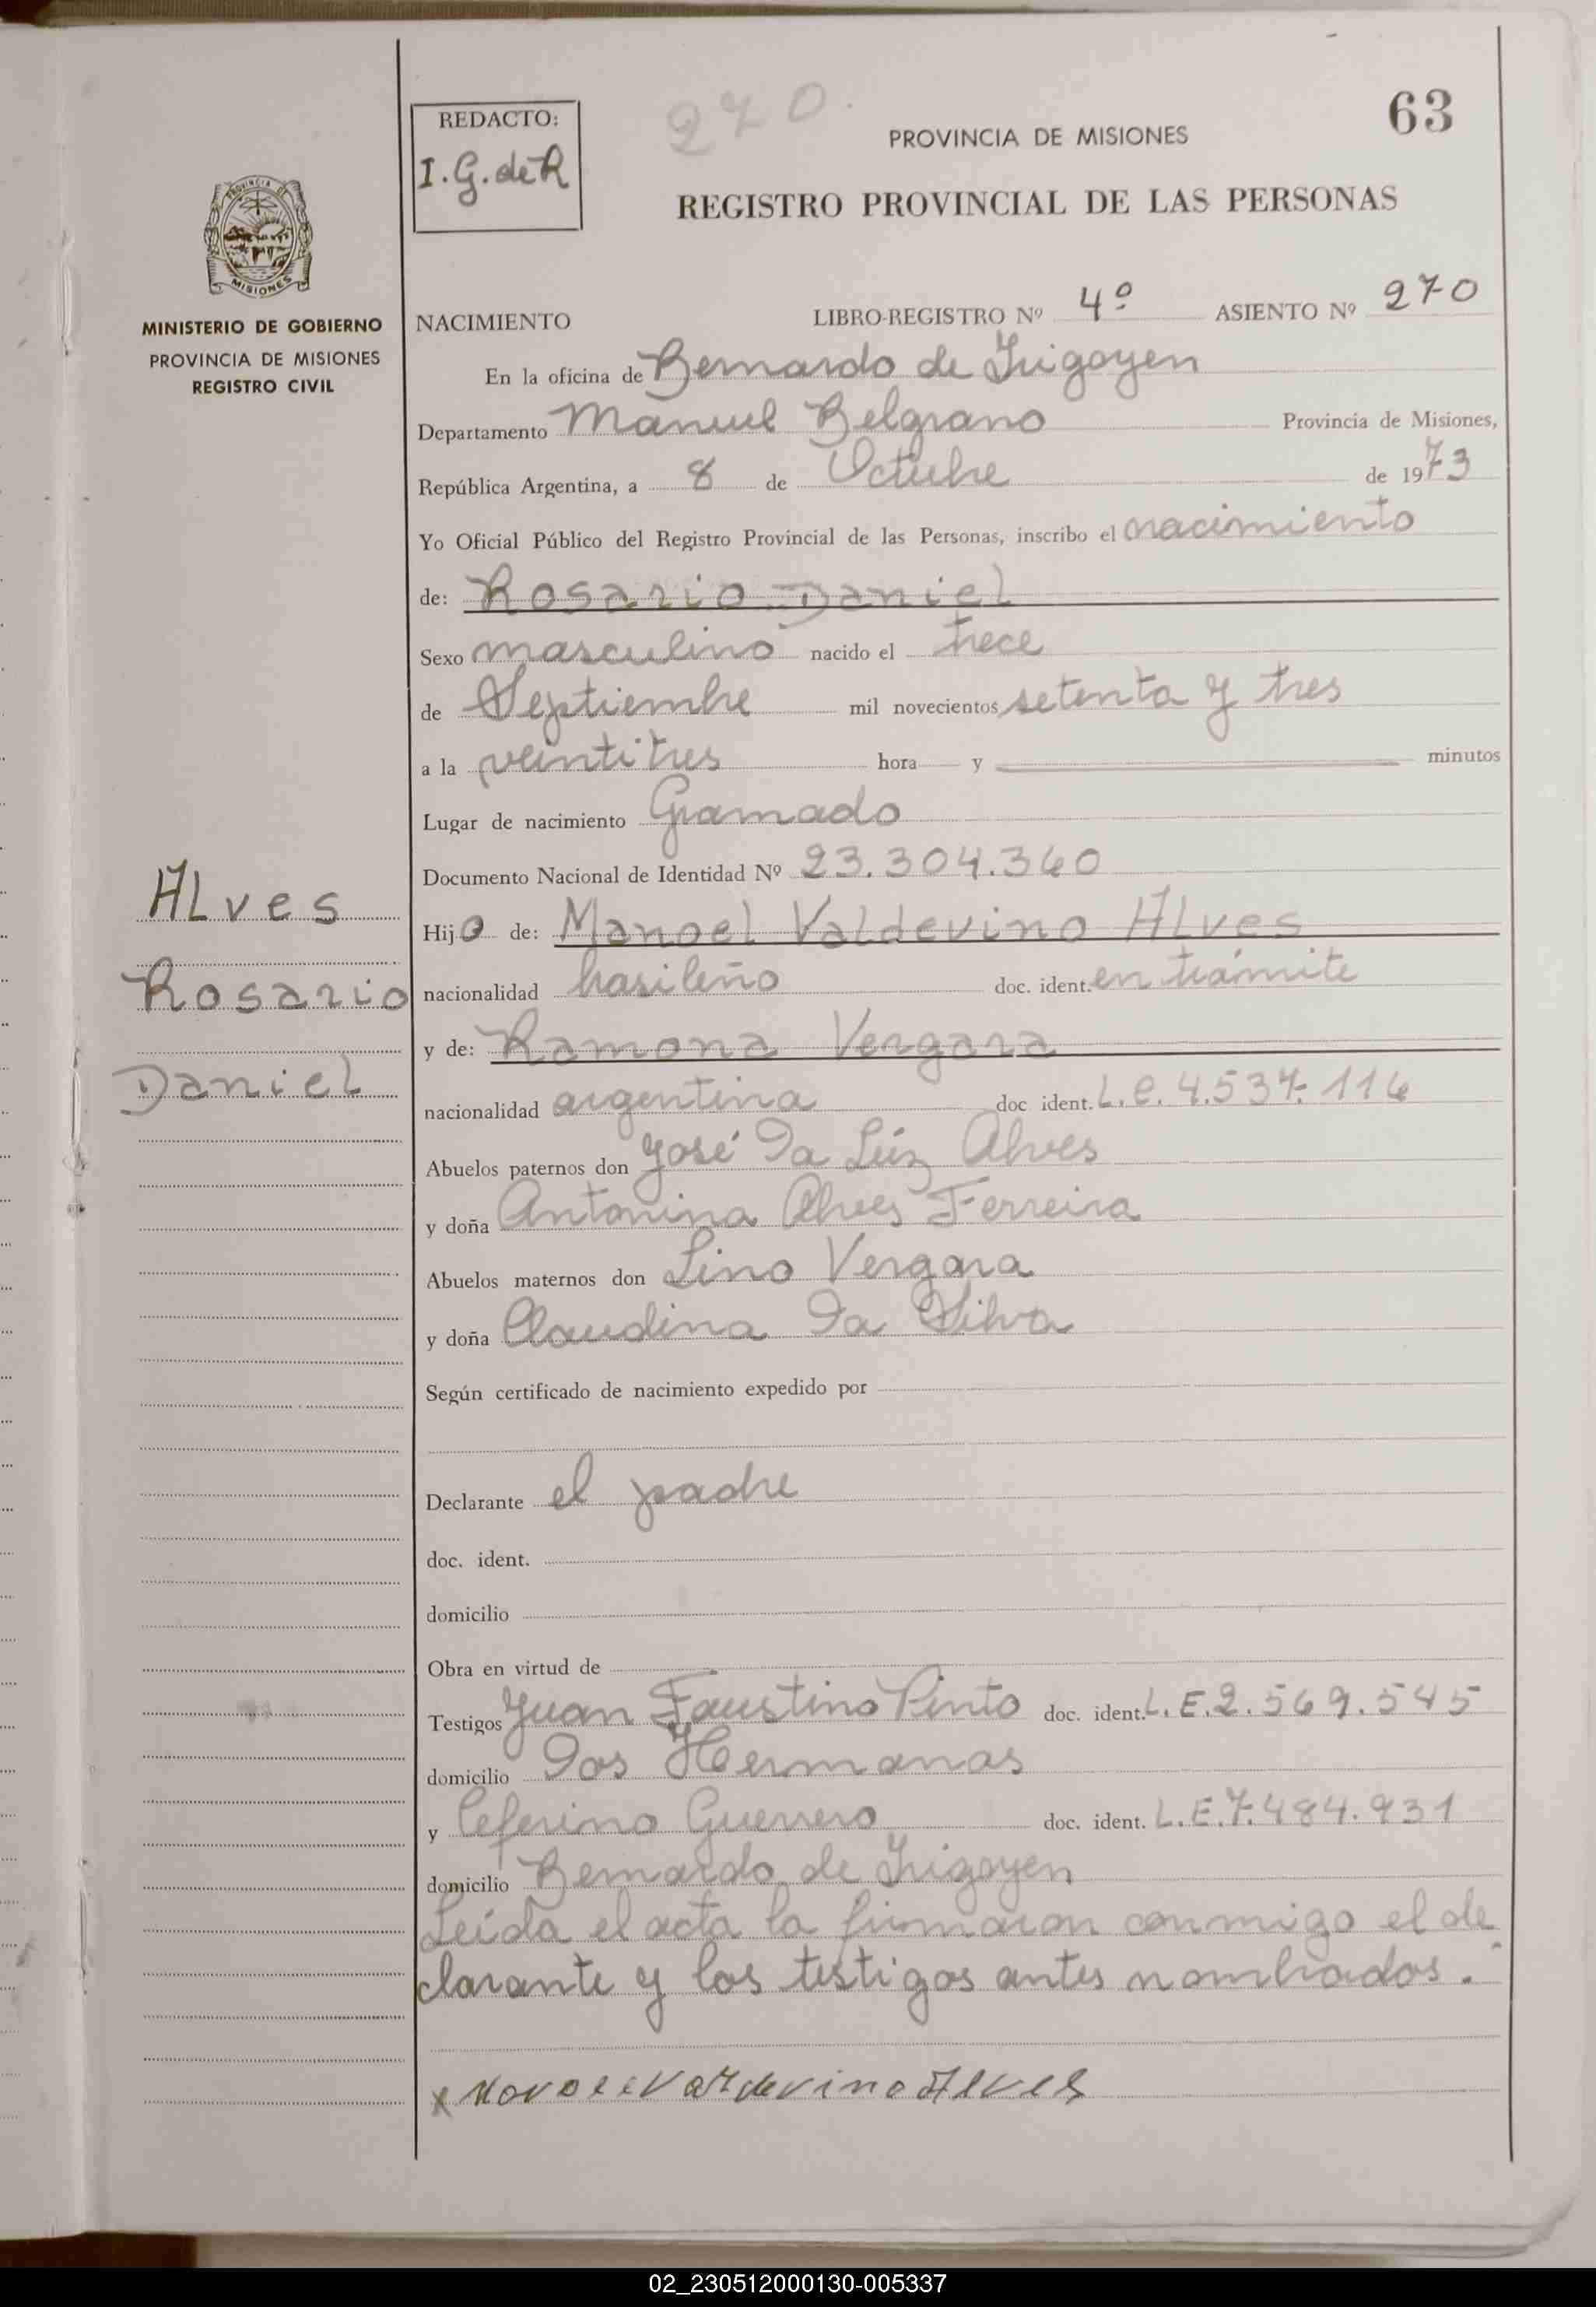 270.
63
REDACTO:
I.G. de R
PROVINCIA DE MISIONES
REGISTRO PROVINCIAL DE LAS PERSONAS
PROVINCIA DE
MISIONES
MINISTERIO DE GOBIERNO
PROVINCIA DE MISIONES
REGISTRO CIVIL
NACIMIENTO LIBRO-REGISTRO Nº 4º ASIENTO Nº 270
En la oficina de Bernardo de Irigoyen
Departamento Manuel Belgrano Provincia de Misiones,
República Argentina, a 8 de Octubre de 1973
Yo Oficial Público del Registro Provincial de las Personas, inscribo el nacimiento
de: Rosario Daniel
Sexo masculino nacido el trece
de Septiembre mil novecientos setenta y tres
a la veintitres hora y minutos
Lugar de nacimiento Gramado
Documento Nacional de Identidad Nº 23.304.360
Hijo de: Manoel Valdevino Alves
nacionalidad brasileño doc. ident. en trámite
y de: Ramona Vergara
nacionalidad argentina doc ident. L.C. 4.537.116
Abuelos paternos don José Da Lúz Alves
y doña Antonina Alves Ferreira
Abuelos maternos don Lino Vergara
y doña Claudina Da Silva
Según certificado de nacimiento expedido por
Declarante el padre
doc. ident.
domicilio
Obra en virtud de
Testigos Juan Faustino Pinto doc. ident. L.E.2.569.545
domicilio Dos Hermanas
y Ceferino Guerrero doc. ident. L.E.7.484.931
domicilio Bernardo de Irigoyen
Leída el acta la firmaron conmigo el de
clarante y los testigos antes nombrados.
x Alves
ALves
Rosario
Daniel
02_230512000130-005337